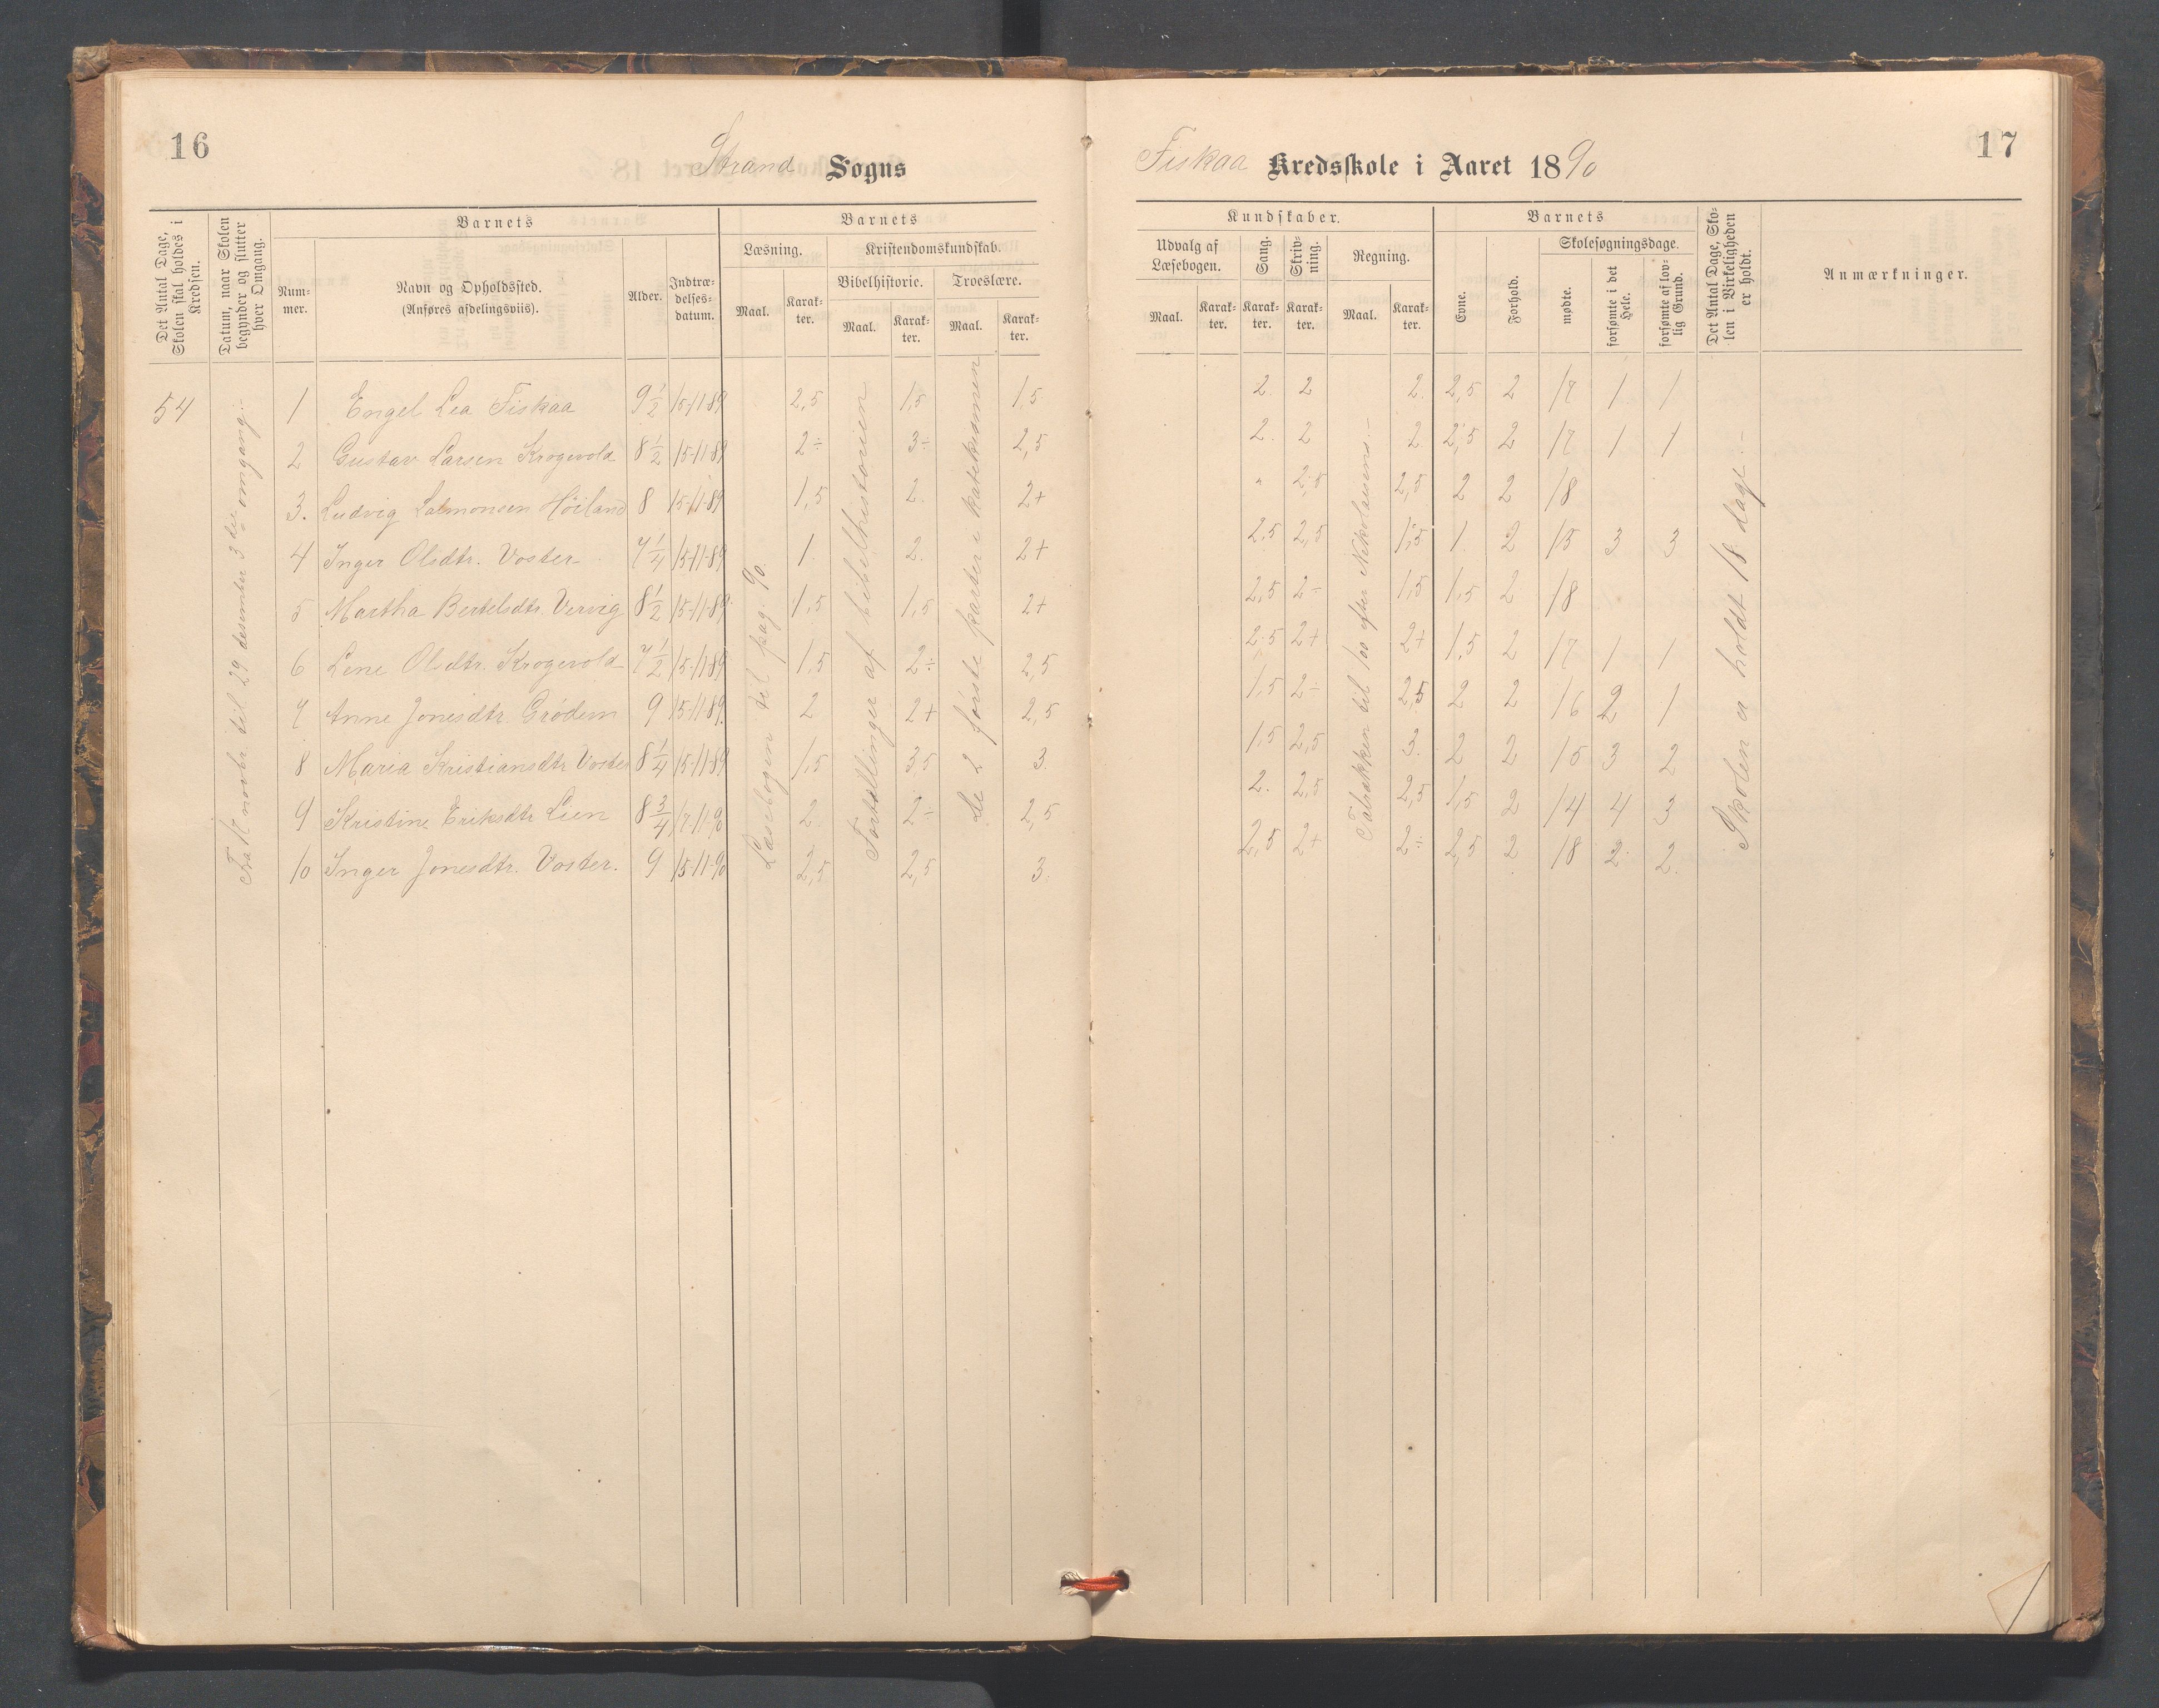 16
Strand Sogns
Fiskaa Kredsskole i Aaret 1890
17
Det Antal Dage, Skolen skal holdes i Kredsen.
Datum, naar Skolen begynder og slutter hver Omgang.
Barnets
Nummer.
Navn og Opholdssted.
(Anføres afdelingsviis).
Alder.
Indtrædelsesdatum.
Barnets
Læsning.
Maal.
Karakter.
Kristendomskundskab.
Bibelhistorie.
Maal.
Karakter.
Troeslære.
Maal.
Karakter.
Kundskaber.
Udvalg af Læsebogen.
Maal.
Karakter.
Sang.
Karakter.
Skrivning.
Karakter.
Regning.
Maal.
Karakter.
Barnets
Evne.
Forhold.
Skolesøgningsdage.
mødte.
forsømte i det Hele.
forsømte af lovlig Grund.
Det Antal Dage, Skolen i Virkeligheden er holdt.
Anmærkninger.
54
til 29 desember 3die omgang.
Læsebogen til pag. 90.
Fortællinger af bibelhistorien
De 2 første parter i katekismen
Talrækken til 100 efter Nikolaisens.
Skolen er holdt 18 dage.
1 Engel Lea Fiskaa 9 1/2 15-11-89 2,5 1,5 1,5 2. 2 2. 2,5 2 17 1 1
2 Gustav Larsen Krogevold 8 1/2 15-11-89 2÷ 3÷ 2,5 2. 2 2 2,5 2 17 1 1
3. Ludvig Salmonsen Höiland 8 15-11-89 1,5 2. 2+ " 2,5 2,5 2 2 18
4 Inger Olsdtr. Voster 7 1/4 15-11-89 1. 2. 2+ 2,5 2,5 1,5 1. 2 15 3 3
5 Martha Bertelsdtr. Vervig 8 1/2 15-11-89 1,5 1,5 2+ 2,5 2÷ 1,5 1,5 2 18
6 Lene Olsdtr. Krogevold 7 1/2 15-11-89 1,5 2÷ 2,5 2,5 2+ 2+ 1,5 2 17 1 1
7 Anne Jonesdtr Grödem 9 15-11-89. 2 2+ 2,5 1,5 2÷ 2,5 2 2 16 2 1
8 Maria Kristiansdtr Voster 8 1/4 15-11-89 1,5 3,5 3. 1,5 2,5 3. 2 2 15 3 2
9 Kristine Eriksdtr Lien 8 3/4 17-11-90 2 2÷ 2,5 2. 2,5 2,5 1,5 2 14 4 3
10 Inger Jonesdtr. Voster. 9 15-11-90 2,5 2,5 3. 2,5 2+ 2÷ 2,5 2 18 2 2